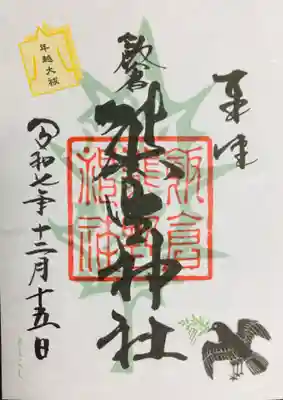 奉拝
飯倉
熊野神社
飯倉
熊野
神社
令和七年十二月十五日
年越大祓